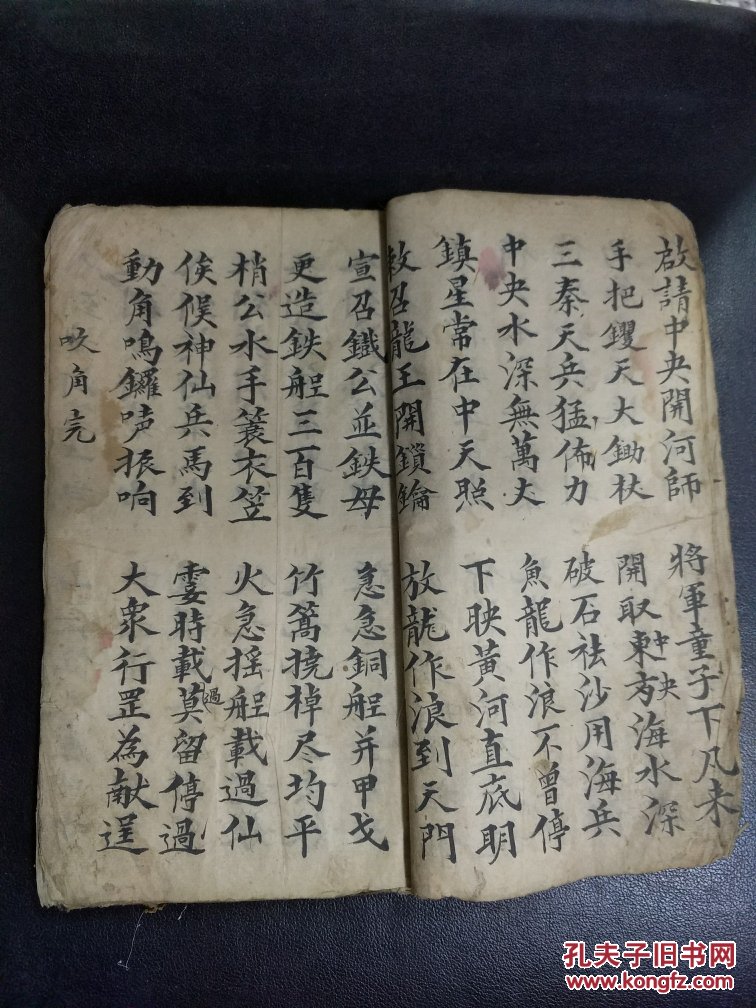 啟請中央開河師 將軍童子下凡来
手把钁天大鋤杖 開取東方海水深
中央
三秦天兵猛佈力 破石祛沙用海兵
中央水深無萬丈 魚龍作浪不曾停
鎮星常在中天照 下映黃河直底明
敕召龍王開鎖鑰 放龍作浪到天門
宣召鐵公並鉄母 急急銅船并甲戈
更造鉄船三百隻 竹篙撓棹尽均平
梢公水手簑衣笠 火急摇船載過仙
俟候神仙兵馬到 霎時載莫留停過
過
動角鳴鑼声振响 大衆行罡為献逞
吹角完
孔夫子旧书网
www.kongfz.com